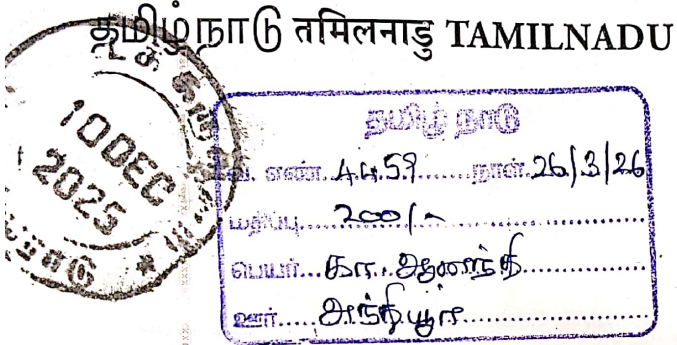 தமிழ்நாடு तमिलनाडु TAMILNADU
10 DEC
2025
தமிழ் நாடு
வ. எண். 4457 நாள். 26/3/26
மதிப்பு 200/-
பெயர் கா.
ஊர் அந்தியூர்